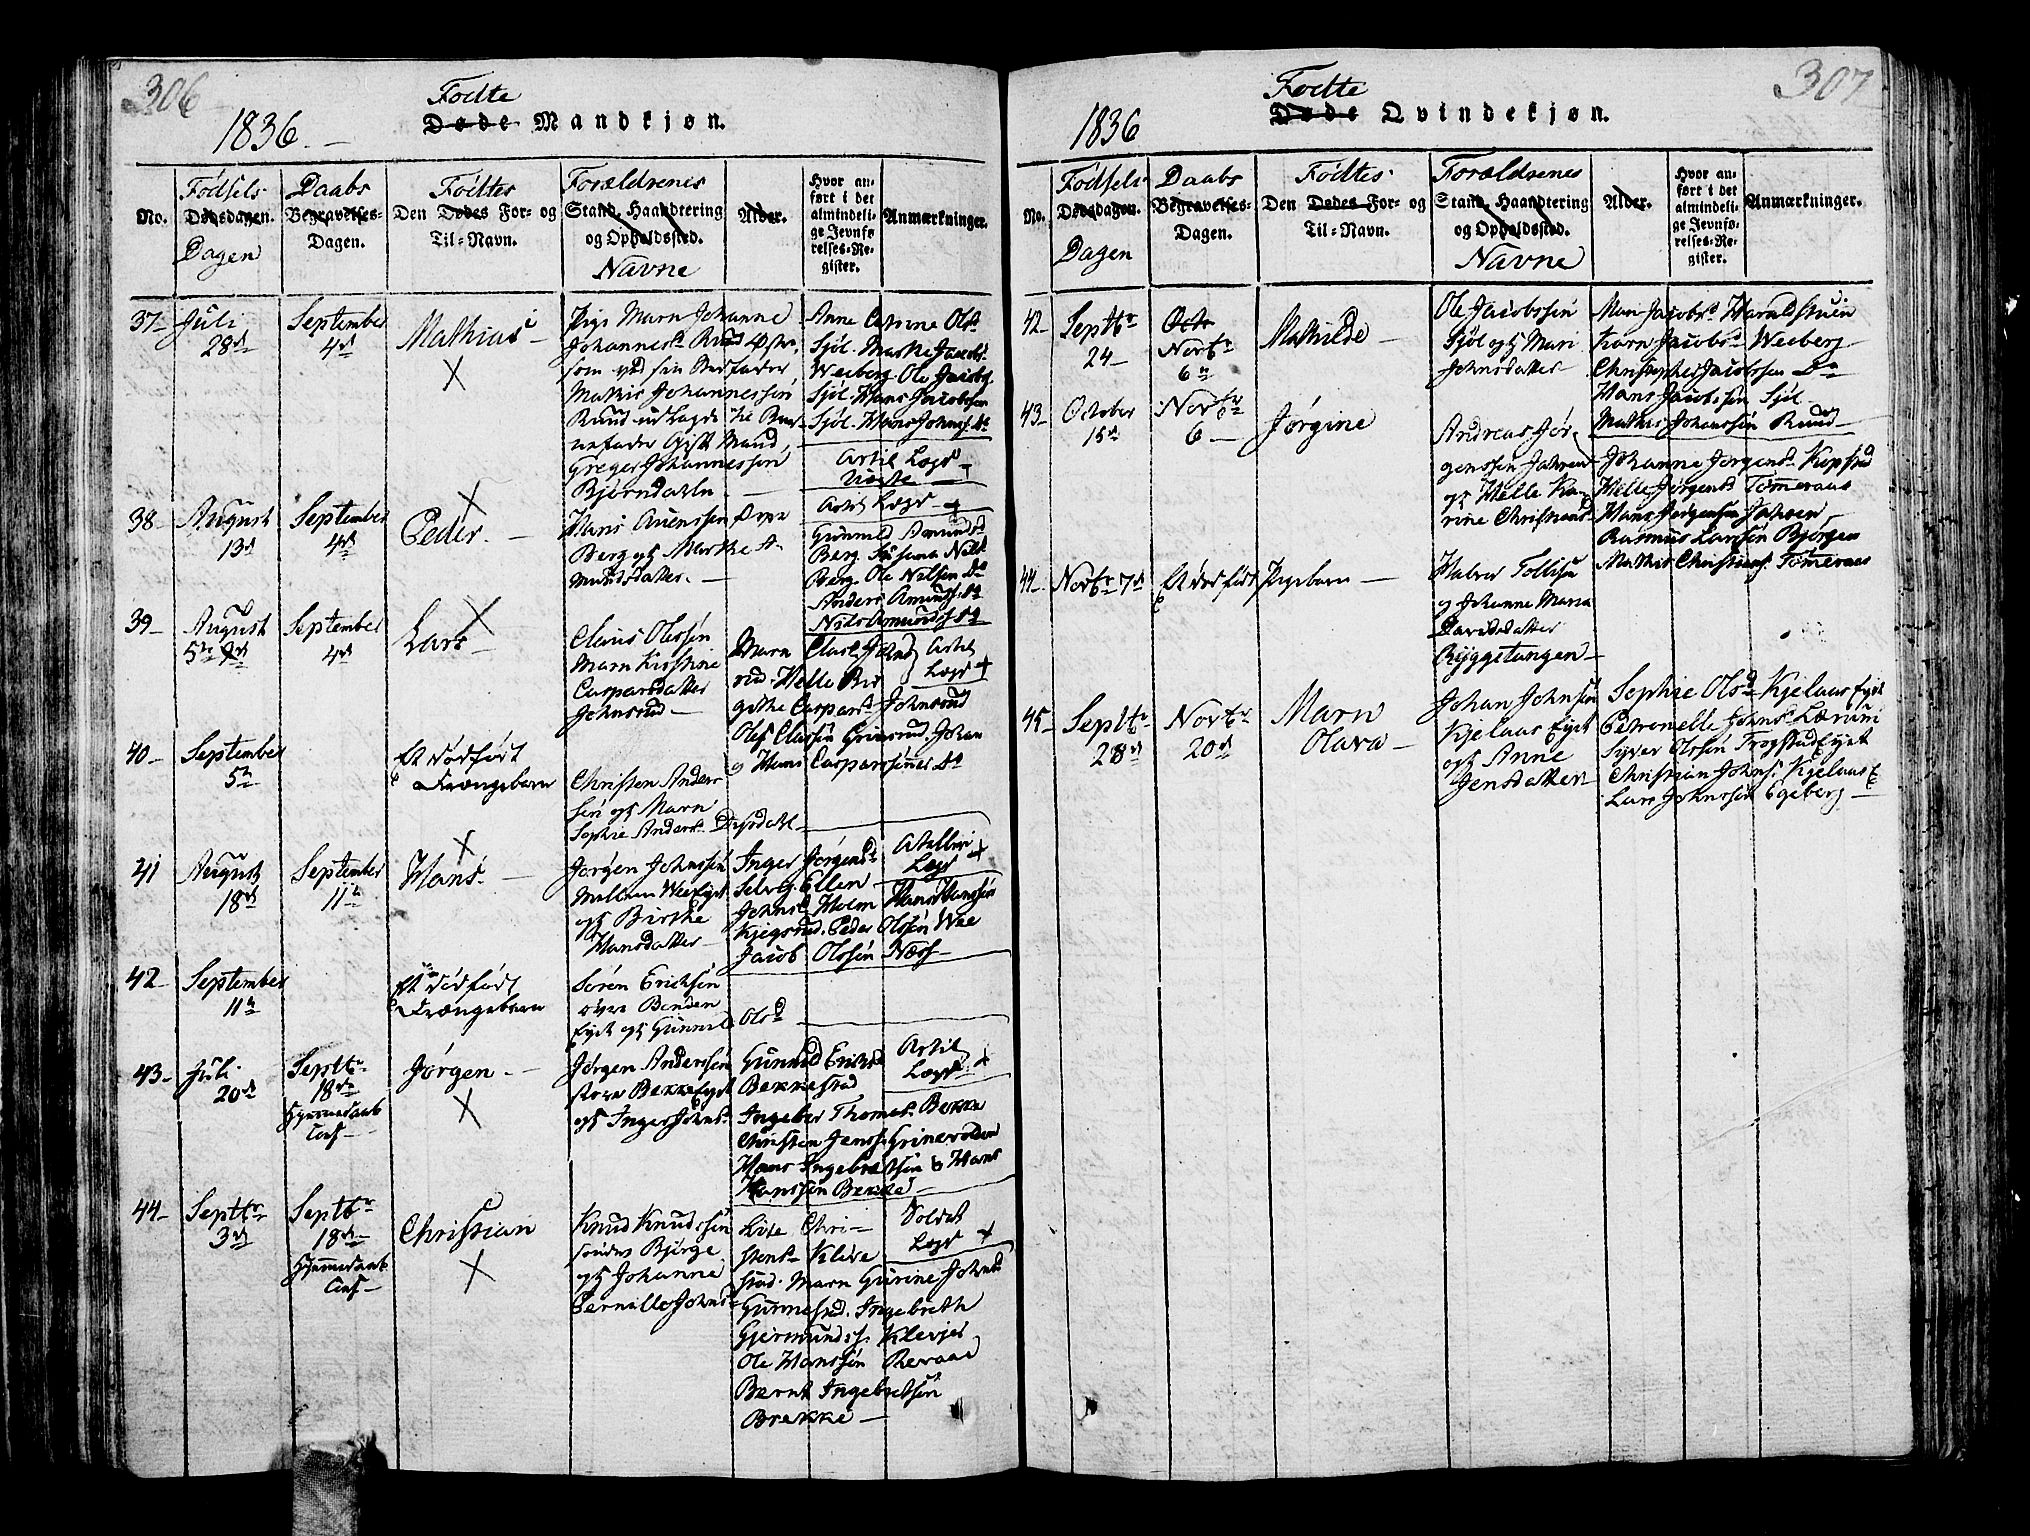 306
Fødte
1836.-
Døde Mandkjøn.
No.
Fødsels
Dødsdagen.
Dagen
Daabs
Begravelses-
Dagen.
Fødtes
Den Dødes For- og
Til-Navn.
Forældrenes
Stand, Haandtering
og Opholdssted.
Navne
Alder.
Hvor an-
ført i det
almindeli-
ge Jevnfø-
relses-Re-
gister.
Anmærkninger.
37- Juli
28de
September
4de
Mathias -
X
Pige Marn Johanne
Johannesd. Ruud
som ved sin Stedfader
Mathis Johannessen
Ruud udlagde til Bar-
nefader Gift Mand,
Greger Johannessen
Bjørndahln. -
Anne Cathrine Olsd.
Sjøl. Marthe Jacobsd.
Weeberg. Ole Jacobs.
Sjøl. Hans Jacobssen
Sjøl. Hans Johns. Do
Artil Lægd
38- August
13de
September
4de
X
Peder. -
Hans
Berg og Marthe A-
mundsdatter. -
Artil Lægd - +
Gunnild Amundsd.
Berg Susana Nilsd.
Berg. Ole Nilsen Do
Anders Amunds. Do
Nils Amunds. Do
39- August
5te
September
4de
X
Lars -
Claus Olessen
Marn Kirstine
Caspersdatter
Johnsrud -
Marn Clausd. Johns
rud. Helle Bir
githe Caspersd. Johnsrud
Ole Classen Grimsrud Johan
og Hans Casparsønner Do
Artil
Lægd +
40- September
5te
Et dødfødt
Drengebarn
Christen Anders
sen og Marn
Sophie Andersd. Dysdahl -
41 August
18de
September
11te
X
Hans. -
Jørgen Johnssen
Mellem Wee Eyet
og Birthe
Hansdatter -
Inger Jørgensd.
Selvg. Ellen
Johnsd. Holm Hans Hanssen
Kjegsrud. Peder Olssen Wee
Jacob Olssen Næss -
Lægd +
42- September
11te
Et dødfødt
Drengebarn
Søren Ericksen
øvre Benden
Eyet og Gunnild Olsd.
43- Juli
20de
Septbr
18de
Hjemmedaab
Conf -
Jørgen. -
X
Jørgen Anderssen
store Bekke Eyet
og Inger Johnsd.
Gunnild Ericksd.
Bekkestad
Ingeber Thomesd. Bekke
Christen Jenss. Grinerøden
Hans Ingebretsen & Hans
Hanssen Bekke -
Artil
Lægd +
44- Septbr
3de
Septbr
18de
Hjemmedaab
Conf -
Christian
X
Knud Knudssen
søndre Bjørge
og Johanne
Pernille Johnsd.
Live Chri-
stensd. Klive
stad. Marn Gurine Johnsd.
Gunnestad. Ingebreth
Gjermundss. Klevjer
Ole Hanssen Revaae
Bernt Ingebretsen
Brekke -
Soldat
Lægd +
307
Fødte
1836
Døde Qvindekjøn.
No.
Fødsels
Dødsdagen.
Dagen
Daabs
Begravelses-
Dagen.
Fødtes
Den Dødes For- og
Til-Navn.
Forældrenes
Stand, Haandtering
og Opholdssted.
Navne
Alder.
Hvor an-
ført i det
almindeli-
ge Jevnfø-
relses-Re-
gister.
Anmærkninger.
42- Septbr
24-
Octr
Novbr
6te
Mathilde -
Ole Jacobssen
Sjøl og Mari
Johnsdatter
Mari Jacobsd. Haraldstuen
Karn Jacobsd. Weeberg
Christopher Jacobssen Do
Hans Jacobssen Sjøl -
Mathis Johanssen Ruud -
43- October
15de
Novbr
6 -
Jørgine
Andreas Jør-
genssen Jahren
og Helle Ka-
rine Christiansd.
Johanne Jørgensd. Kopstad
Helle Jørgensd. Tømeraas
Hans Jørgensen Jahren -
Rasmus Larssen Bjørgen
Mathis Christians. Tømeraas
44- Novbr 7de Et dødfødt Pigebarn -
Halvor Tollefsen
og Johanne Maria
Davidsdatter
Ryggetangen -
45- Septbr
28de
Novbr
20de
Marn
Olava -
Johan Johnsen
Kjelaas Eyet
og Anne
Jensdatter -
Sophie Olsd. Kjelaas Eyet
Petronelle Johnsd. Lærum
Syver Olssen Trogstad Eyet
Christian Johns. Kjelaas E
Lars Johnssen Egeberg -